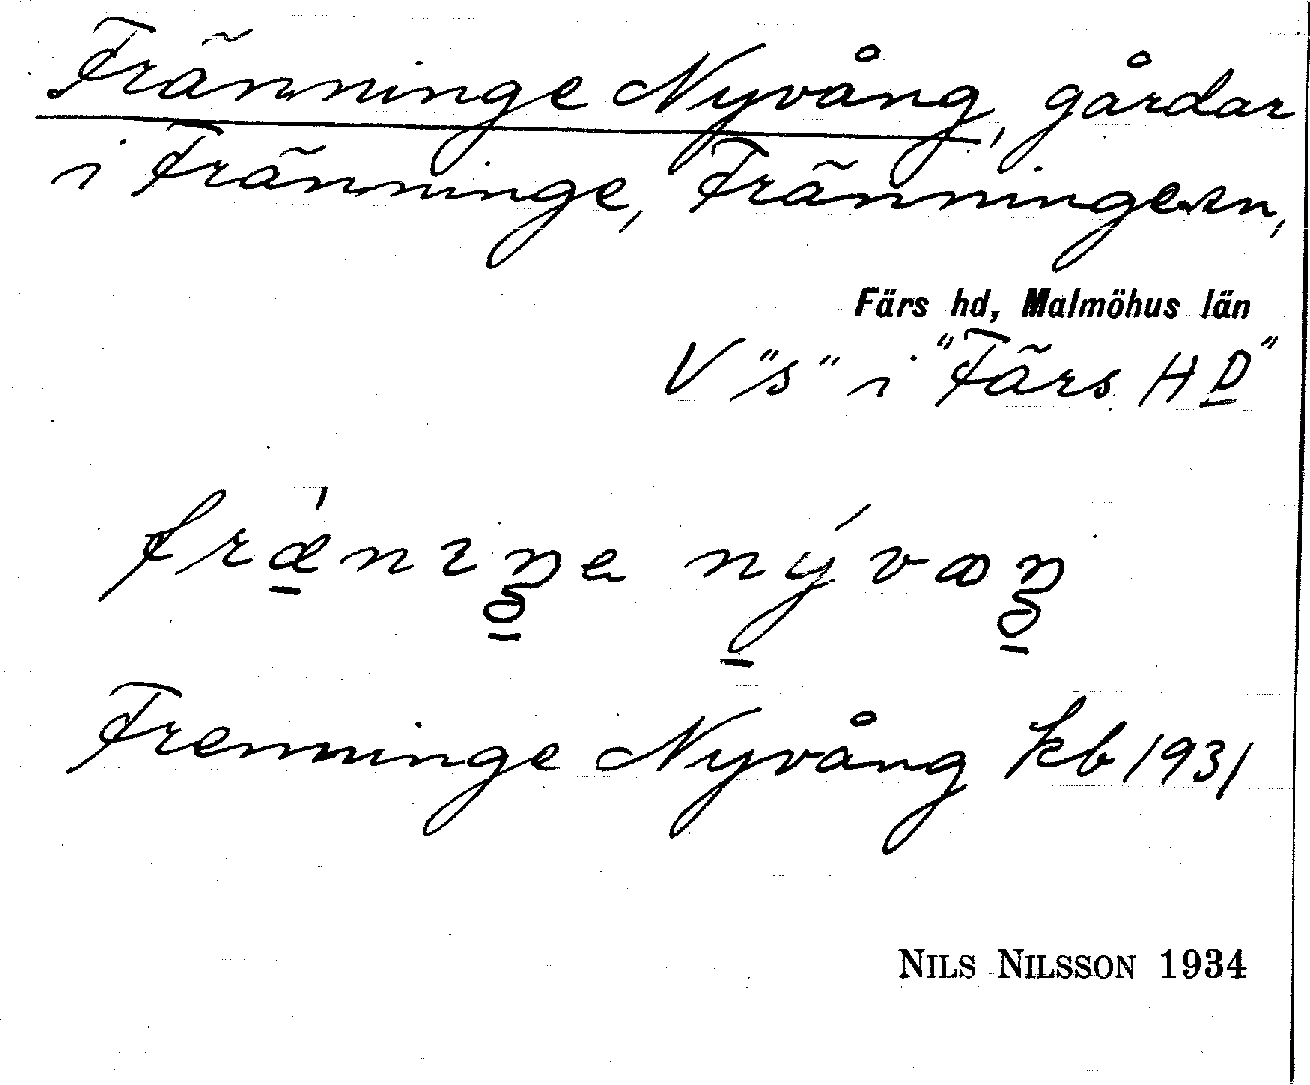 Fränninge Nyvång, gårdar
i Fränninge, Fränninge sn,
Färs hd, Malmöhus län
V "s" i "Färs HD"
frǽnıŋa nývaŋ
Frenninge Nyvång kb 1931
NILS NILSSON 1934